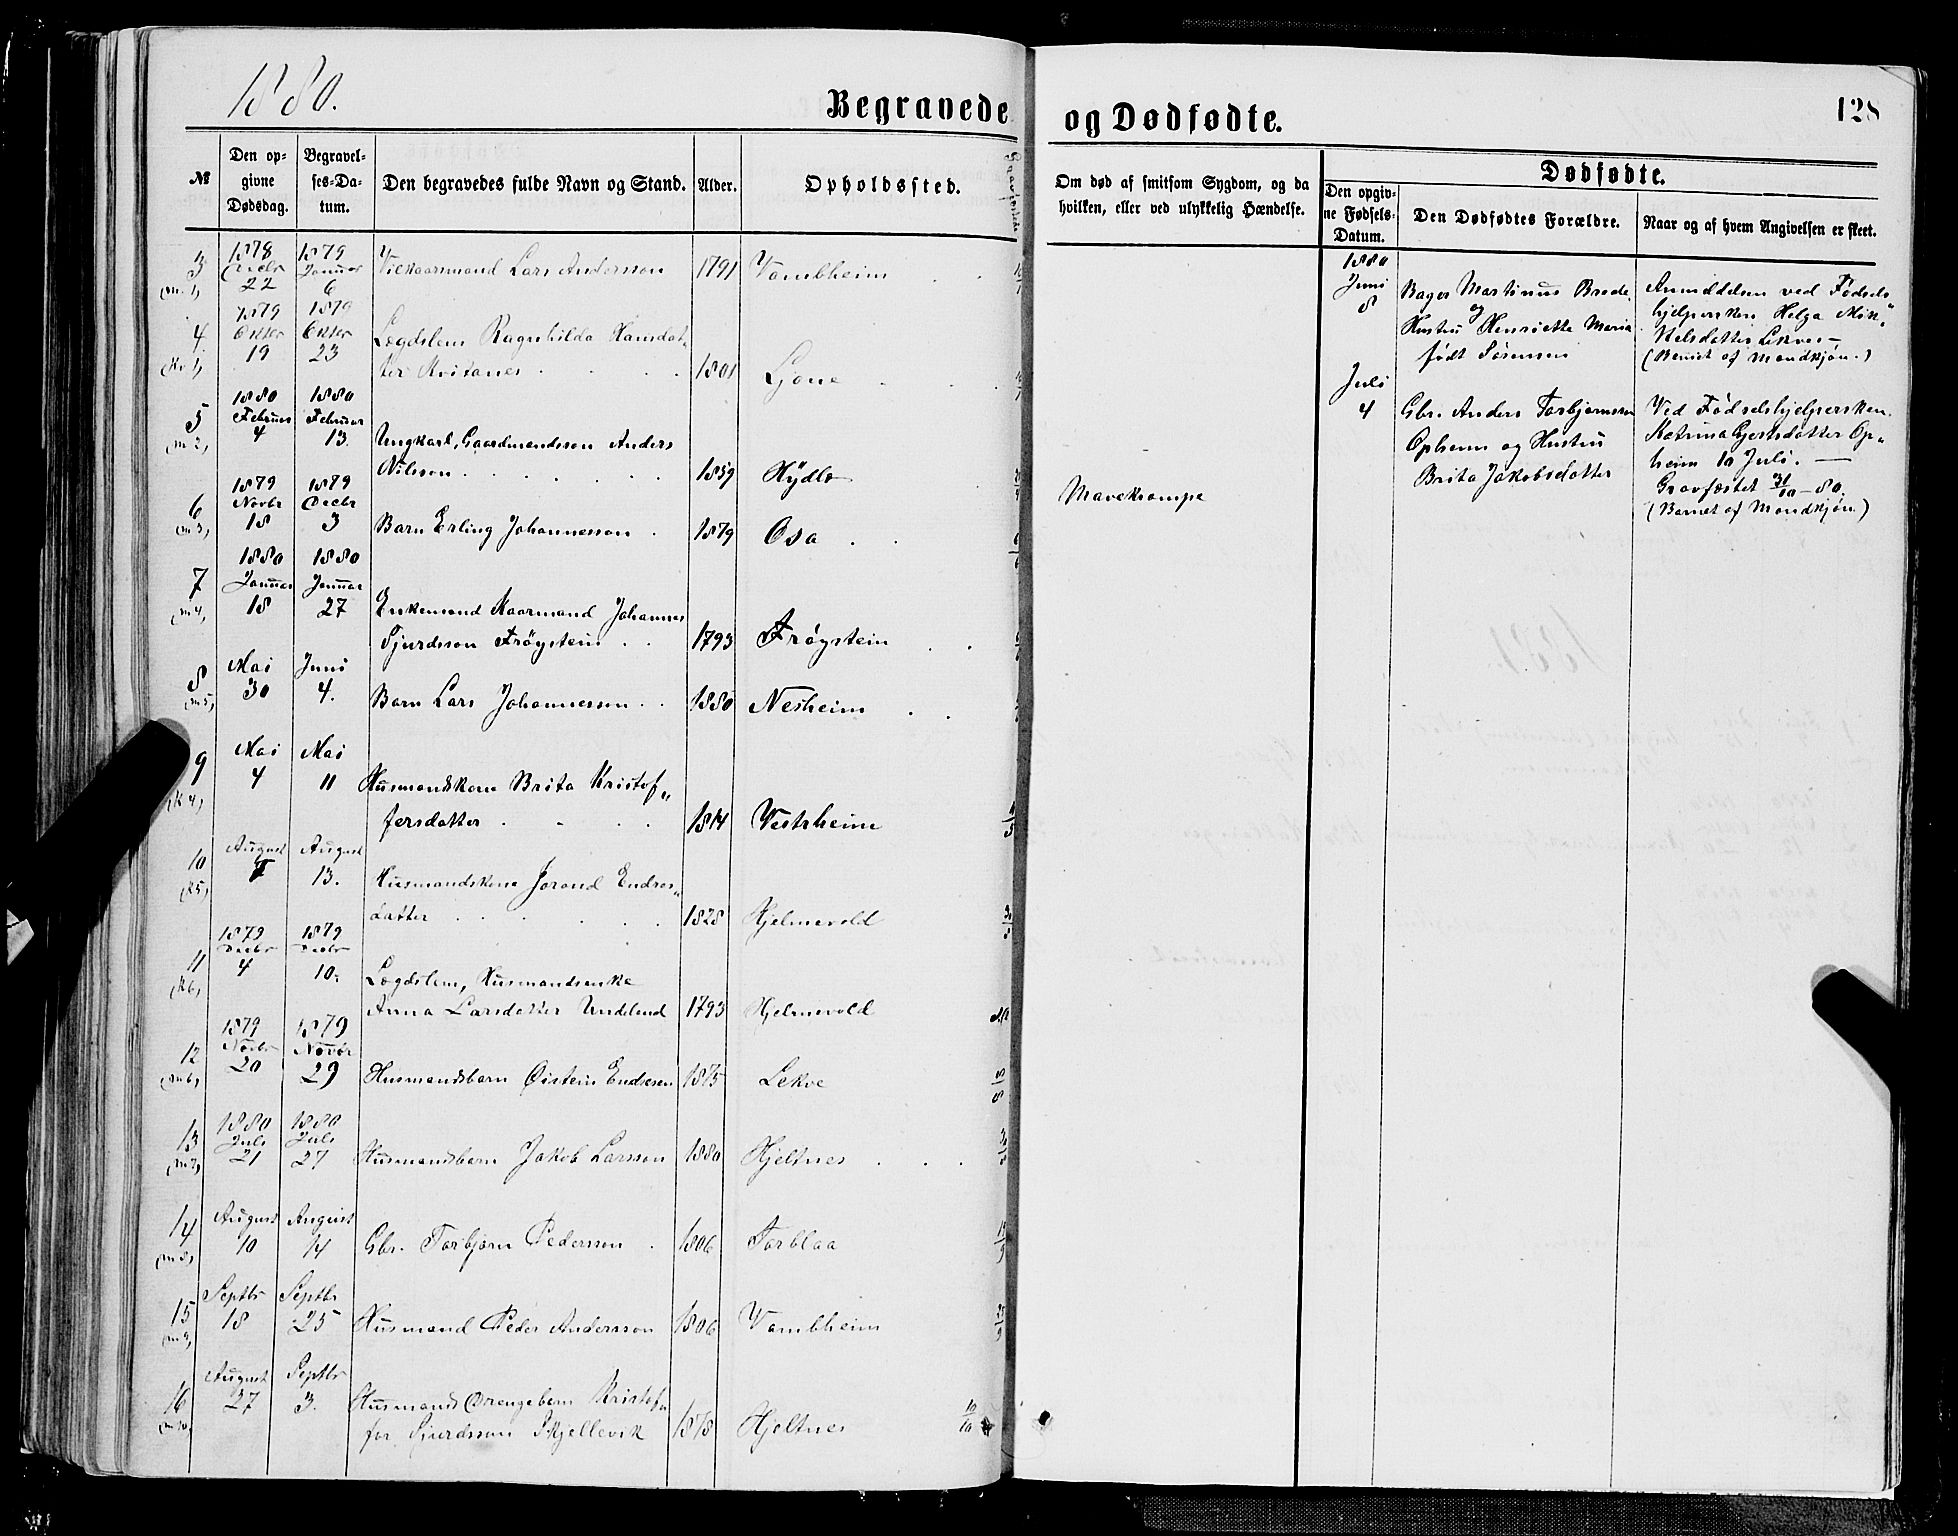 1880.
Begravede og Dødfødte.
128
№
Den op-
givne
Dødsdag.
Begravel-
ses-Da-
tum.
Den begravedes fulde Navn og Stand.
Alder.
Opholdssted.
Om død af smitsom Sygdom, og da
hvilken, eller ved ulykkelig Hændelse.
Dødfødte.
Den opgiv-
ne Fødsels-
Datum.
Den Dødfødtes Forældre.
Naar og af hvem Angivelsen er skeet.
3 (m. 1) 1878 Decbr 22 1879 Januar 6 Vilkaarsmand Lars Andersson 1791 Vambheim
4 (Kv 1) 1879 Oktbr 19 1879 Oktbr 23 Lægdslem Ragnhilda Hansdat„
ter Kvitanes 1801 Ljone
5 (m 2) 1880 Februar 4 1880 Februar 13 Ungkarl, Gaardmandssøn Anders
Nilsson 1859 Hydle Mavekrampe
6 (m 3) 1879 Novbr 18 1879 Decbr 3 Barn Erling Johannesson 1879 Osa
7 (m 4) 1880 Januar 18 1880 Januar 27 Enkemand Kaarmand Johannes
Sjurdsson Frøystein 1793 Frøystein
8 (m 5) Mai 30 Juni 4. Barn Lars Johannesson 1880 Nesheim
9 (k 4) Mai 4 Mai 11 Husmandskone Brita Kristof„
fersdatter 1814 Vestrheim
10 (k 5) August 7 August 13. Husmandskone Jorand Endres„
datter 1828 Hjelmevold
11 (k 6) 1879 Decbr 4 1879 Decbr 10. Lægdslem, Husmandsenke
Anna Larsdatter Undelend 1793 Hjelmevold
12 (m 6) 1879 Novbr 20 1879 Novbr 29 Husmandsbarn Øistein Endresen 1875 Lekve
13 (m 7) 1880 Juli 21 1880 Juli 27 Husmandsbarn Jakob Larsson 1880 Hjeltnes
14 (m 8) August 10 August 14 Gbr. Torbjørn Pedersson 1806 Torblaa
15 (m 9) Septbr 18 Septbr 25 Husmand Peder Andersson 1806 Vambheim
16 (m 10) August 27 Septbr 3. Husmands Drengebarn Kristof„
fer Sjurdsson Skjellevik 1878 Hjeltnes 10/10
1880
Juni
8
Bager Martinus Brede
og
Hustru Henriette Maria
født Sørensen
Anmeldelsen ved Fødsels„
hjelpersken Helga Mik„
kelsdatter Lekve –
(Barnet af Mandkjøn.)
Juli
4
Gbr. Anders Torbjørnsson
Opheim og Hustru
Brita Jakobsdatter
Ved Fødselshjelpersken
Katrina Gjertsdatter Op„
heim 10 Juli. —
Gravfæstet 31/10 – 80.
(Barnet af Mandkjøn)